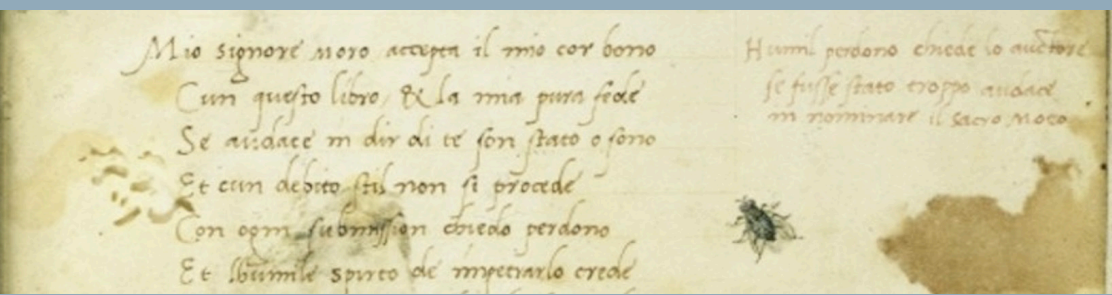 Mio signore moro accepta il mio cor bono
Cun questo libro, & la mia pura fede
Se audace in dir di te son stato o sono
Et cun debito stil non si procede
Con ogni submission chiedo perdono
Et lhumile spirto de impetrarlo crede
Humil perdono chiede lo auctore
se fusse stato troppo audace
in nominare il sacro moro